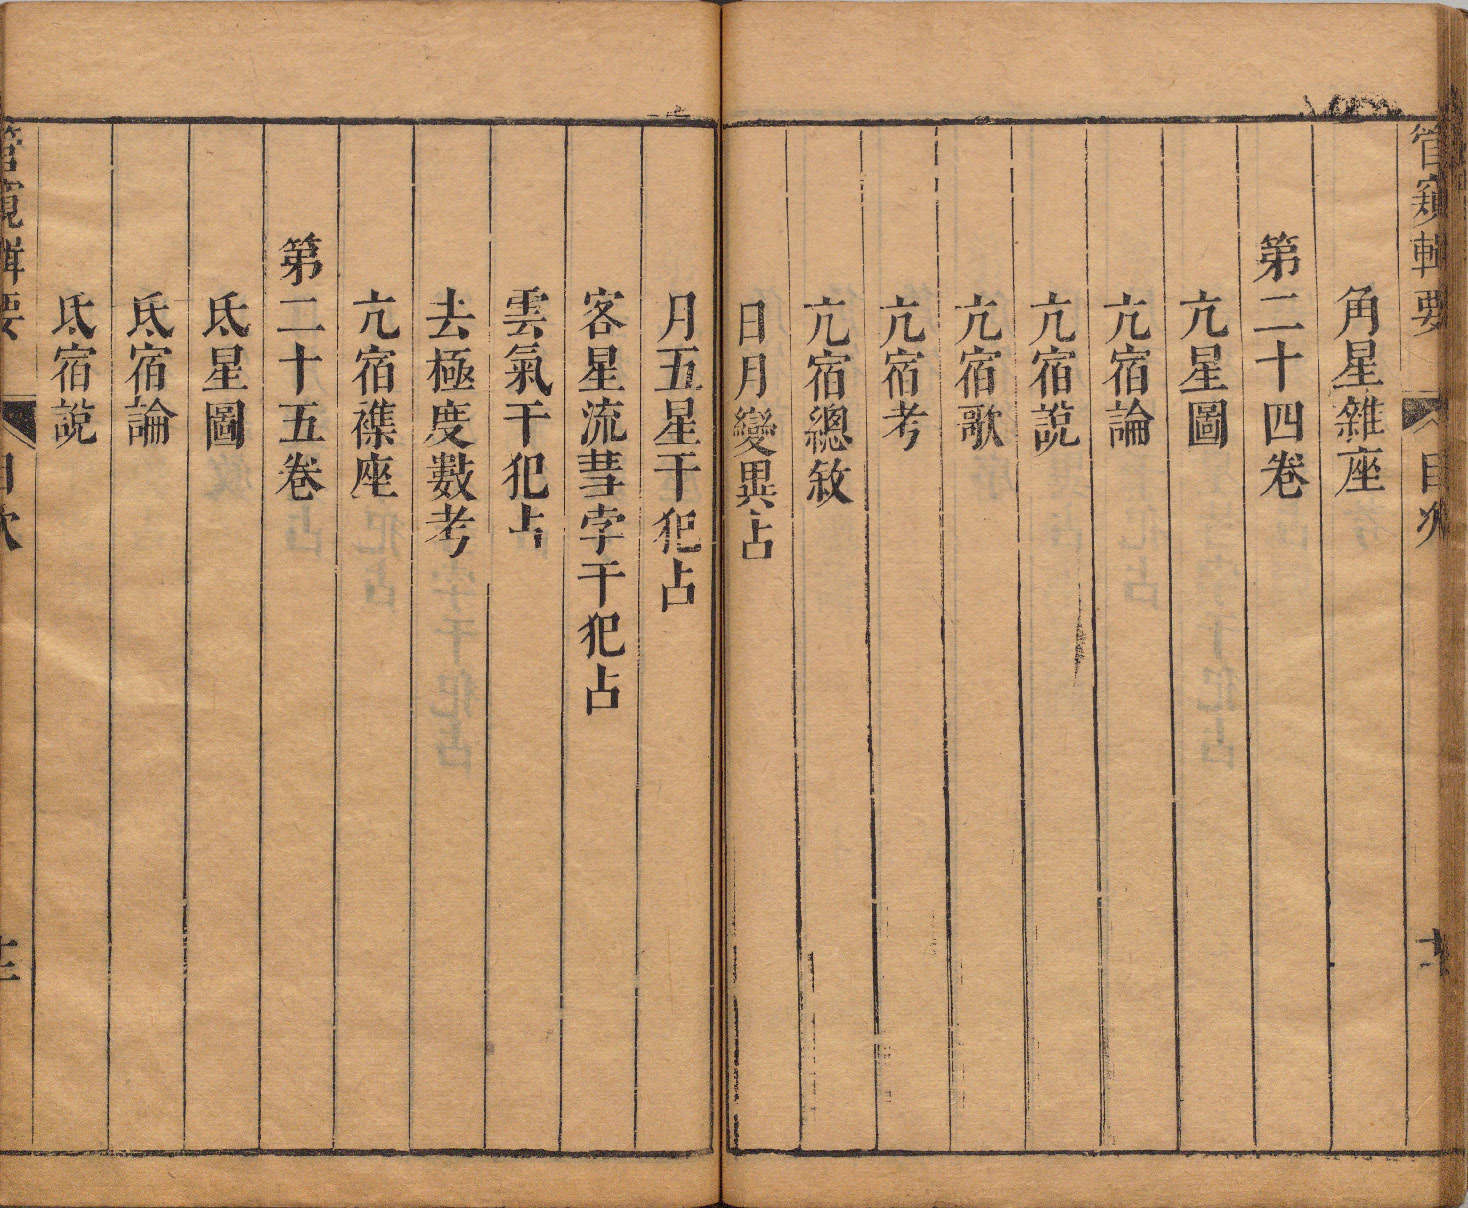 管窺輯要
目次
角星雜座
第二十四卷
亢星圖
亢宿論
亢宿說
亢宿歌
亢宿考
亢宿總敘
日月變異占
月五星干犯占
客星流彗孛干犯占
雲氣干犯占
去極度數考
亢宿襍座
第二十五卷
氐星圖
氐宿論
氐宿說
管窺輯要
目次